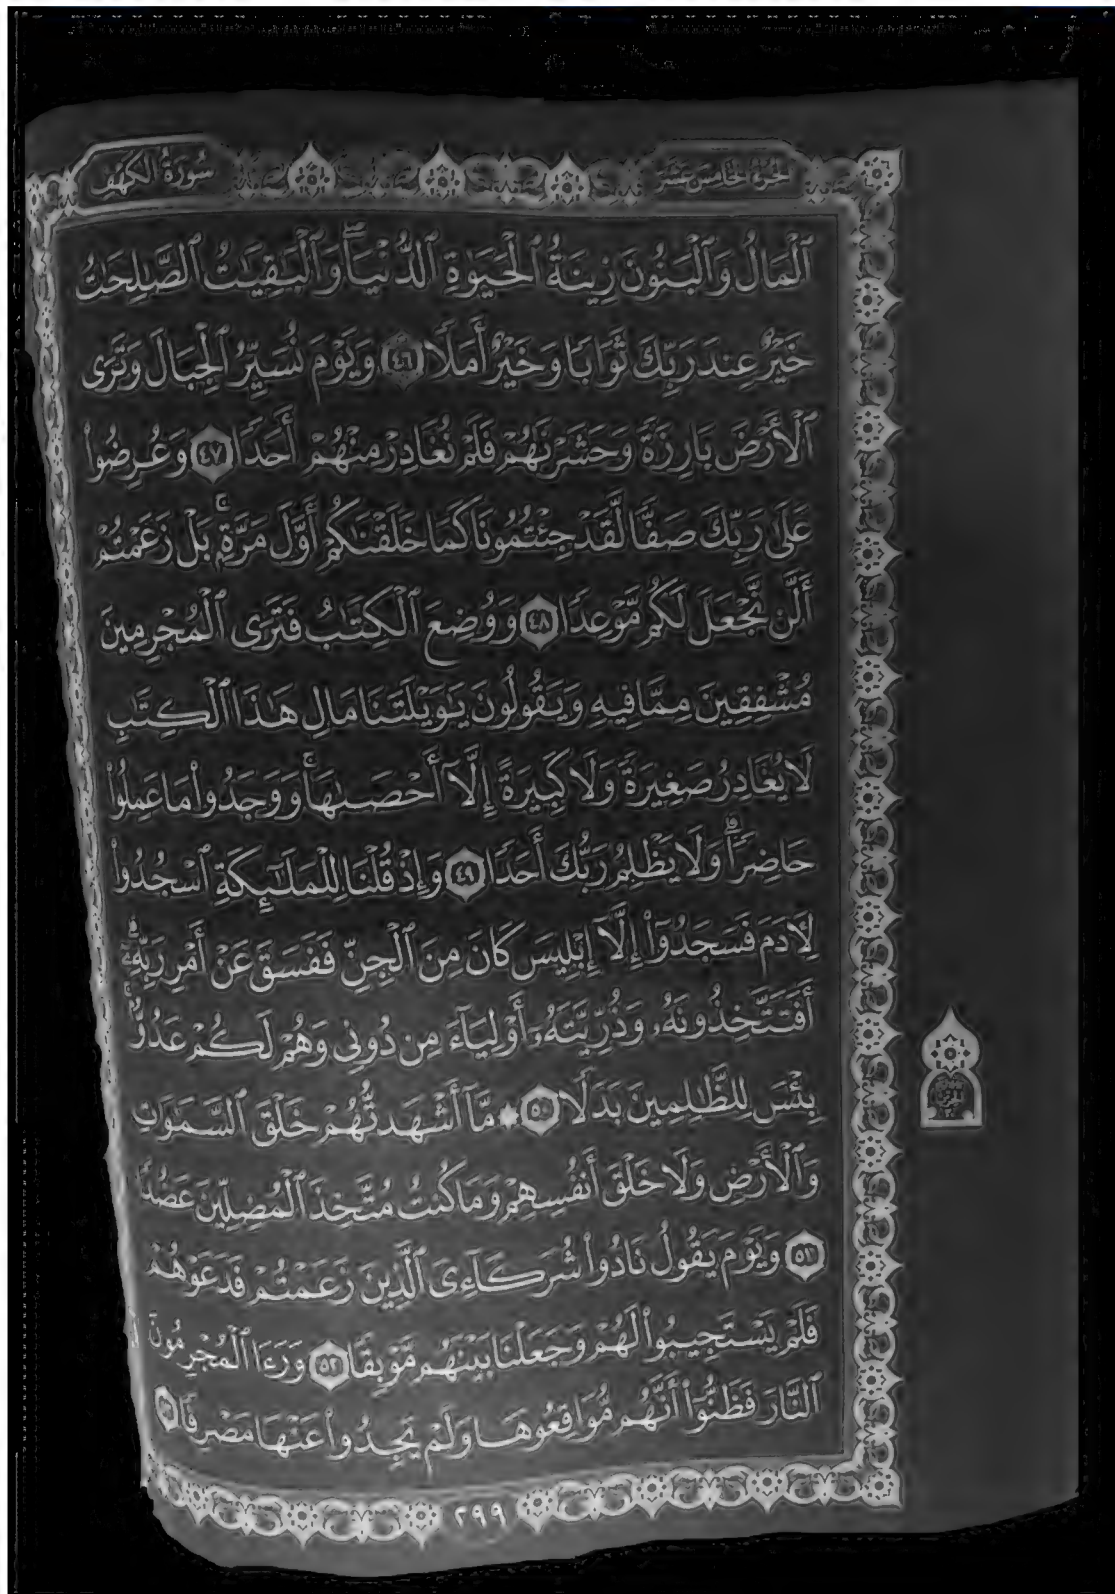 الجزء الخامس عشر
سُورَةُ الكَهْفِ
ٱلْمَالُ وَٱلْبَنُونَ زِينَةُ ٱلْحَيَوٰةِ ٱلدُّنْيَاۖ وَٱلْبَٰقِيَٰتُ ٱلصَّٰلِحَٰتُ
خَيْرٌ عِندَ رَبِّكَ ثَوَابًا وَخَيْرٌ أَمَلًا ٤٦ وَيَوْمَ نُسَيِّرُ ٱلْجِبَالَ وَتَرَى
ٱلْأَرْضَ بَارِزَةً وَحَشَرْنَٰهُمْ فَلَمْ نُغَادِرْ مِنْهُمْ أَحَدًا ٤٧ وَعُرِضُوا۟
عَلَىٰ رَبِّكَ صَفًّا لَّقَدْ جِئْتُمُونَا كَمَا خَلَقْنَٰكُمْ أَوَّلَ مَرَّةٍۭۚ بَلْ زَعَمْتُمْ
أَلَّن نَّجْعَلَ لَكُم مَّوْعِدًا ٤٨ وَوُضِعَ ٱلْكِتَٰبُ فَتَرَى ٱلْمُجْرِمِينَ
مُشْفِقِينَ مِمَّا فِيهِ وَيَقُولُونَ يَٰوَيْلَتَنَا مَالِ هَٰذَا ٱلْكِتَٰبِ
لَا يُغَادِرُ صَغِيرَةً وَلَا كَبِيرَةً إِلَّآ أَحْصَىٰهَاۚ وَوَجَدُوا۟ مَا عَمِلُوا۟
حَاضِرًاۗ وَلَا يَظْلِمُ رَبُّكَ أَحَدًا ٤٩ وَإِذْ قُلْنَا لِلْمَلَٰٓئِكَةِ ٱسْجُدُوا۟
لِءَادَمَ فَسَجَدُوٓا۟ إِلَّآ إِبْلِيسَ كَانَ مِنَ ٱلْجِنِّ فَفَسَقَ عَنْ أَمْرِ رَبِّهِۦٓۗ
أَفَتَتَّخِذُونَهُۥ وَذُرِّيَّتَهُۥٓ أَوْلِيَآءَ مِن دُونِى وَهُمْ لَكُمْ عَدُوٌّۢۚ
بِئْسَ لِلظَّٰلِمِينَ بَدَلًا ٥٠ ۞ مَّآ أَشْهَدتُّهُمْ خَلْقَ ٱلسَّمَٰوَٰتِ
وَٱلْأَرْضِ وَلَا خَلْقَ أَنفُسِهِمْ وَمَا كُنتُ مُتَّخِذَ ٱلْمُضِلِّينَ عَضُدًا
٥١ وَيَوْمَ يَقُولُ نَادُوا۟ شُرَكَآءِىَ ٱلَّذِينَ زَعَمْتُمْ فَدَعَوْهُمْ
فَلَمْ يَسْتَجِيبُوا۟ لَهُمْ وَجَعَلْنَا بَيْنَهُم مَّوْبِقًا ٥٢ وَرَءَا ٱلْمُجْرِمُونَ
ٱلنَّارَ فَظَنُّوٓا۟ أَنَّهُم مُّوَاقِعُوهَا وَلَمْ يَجِدُوا۟ عَنْهَا مَصْرِفًا
٢٩٩